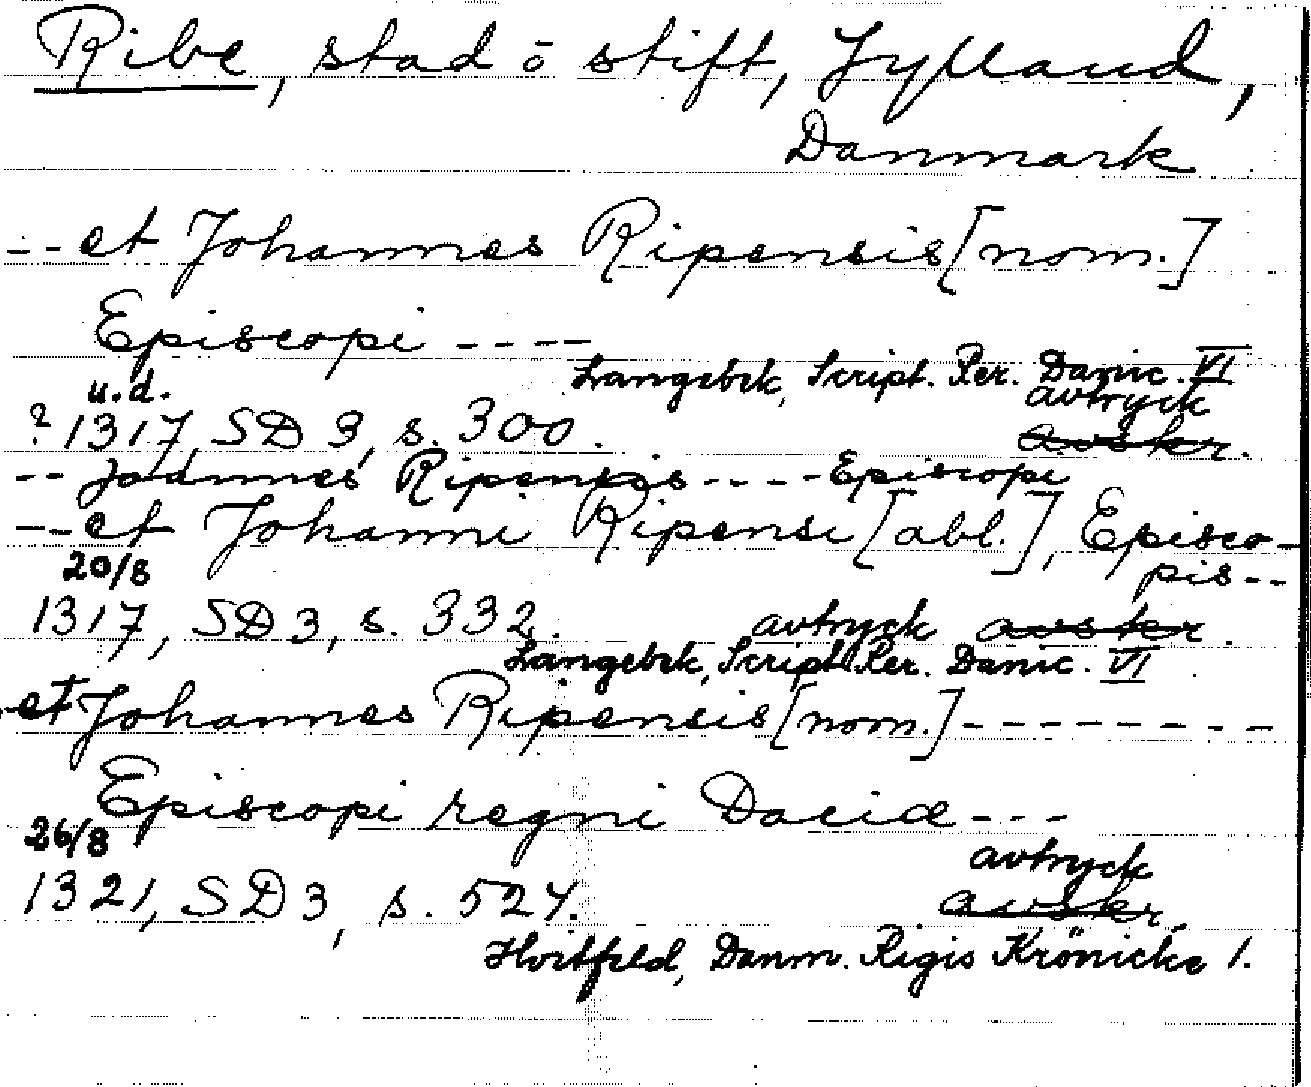 Ribe, stad ō stift, Jylland,
Danmark
-- et Johannes Ripensis [nom.]
Episcopi ----
Langebek, Script. Rer. Danic. VI
u.d.
avtryck
? 1317, SD 3, s. 300.
avskr.
-- Joannes Ripensis ---- Episcopi
-- et Johanni Ripensi [abl.], Episco-
pis --
20/8
1317, SD 3, s. 332. avtryck avskr.
Langebek, Script. Rer. Danic. VI
- et Johannes Ripensis [nom.] --------
Episcopi regni Daciæ ---
26/8
avtryck
1321, SD 3, s. 524.
avskr.
Hvitfeld, Danm. Rigis Krönicke 1.